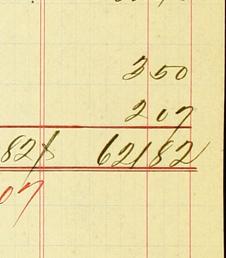 3 50
2 07
82 62182
07